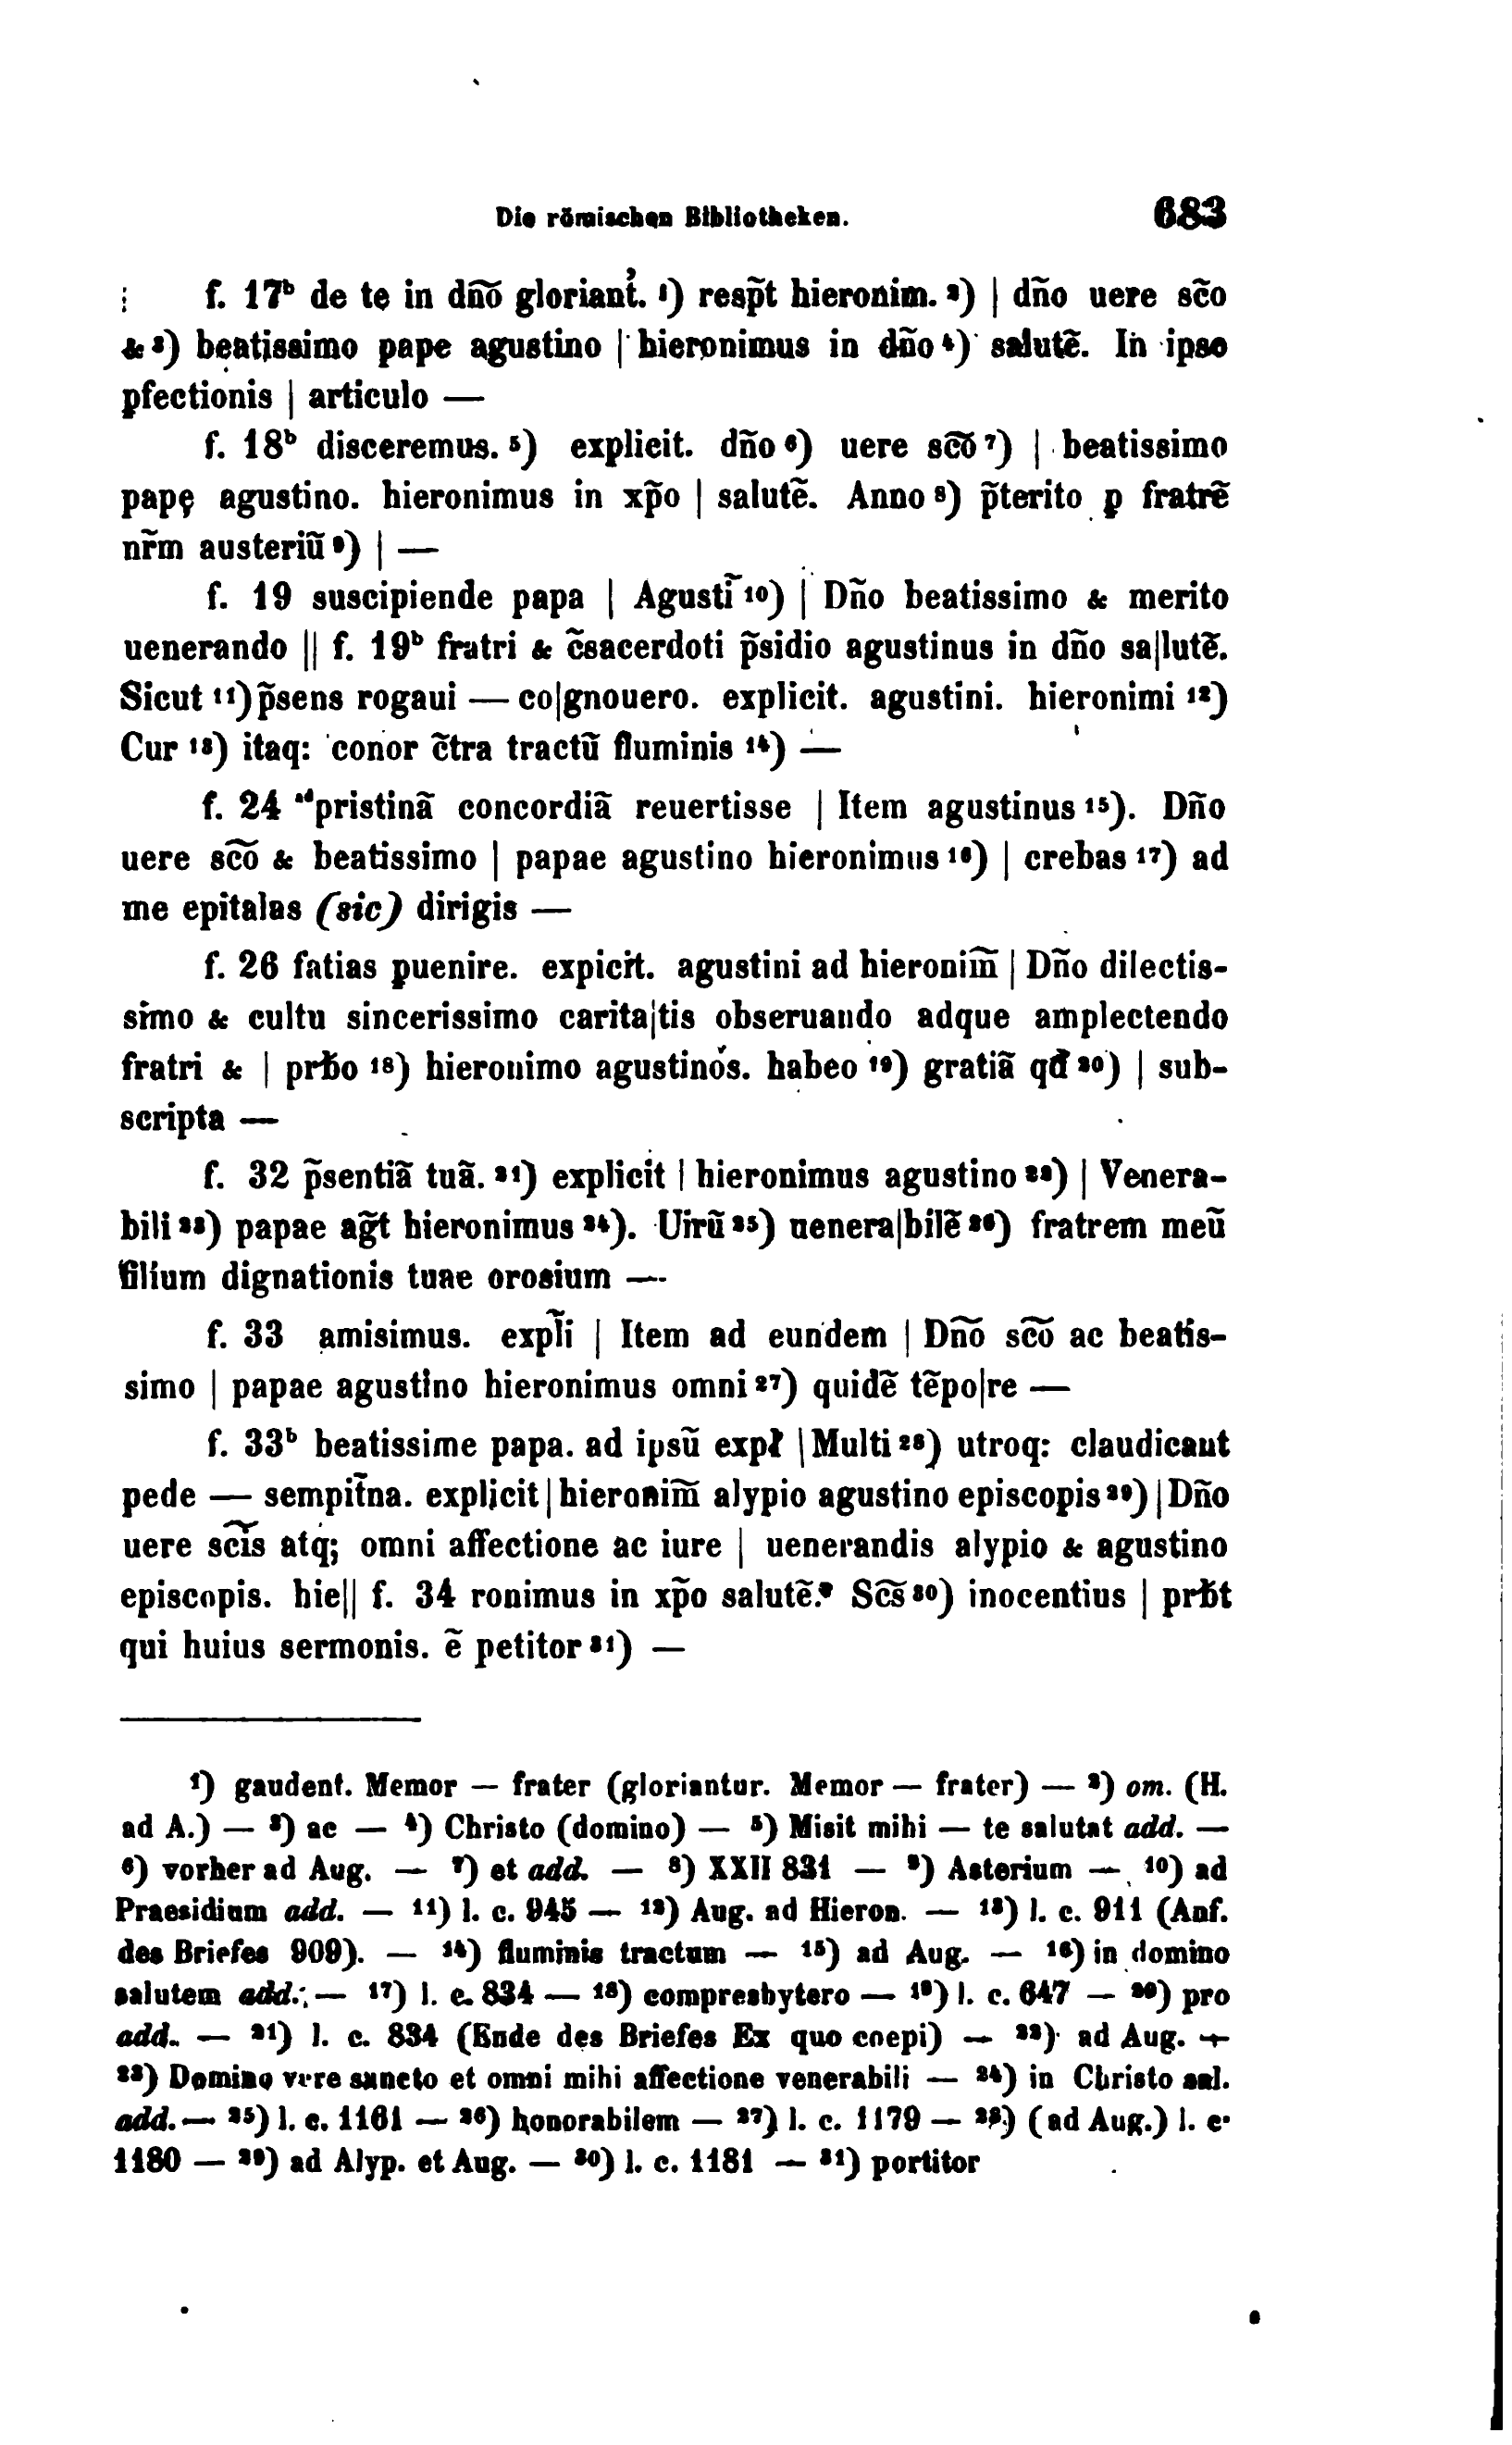 Die römischen Bibliotheken. 683
f. 17ᵇ de tę in dn̄o gloriant̓. ¹) resp̄t hieronim. ²) | dn̄o uere sc̄o
& ³) beatissimo pape agustino | hieronimus in dn̄o ⁴) salutē. In ipso
ꝑfectionis | articulo —
f. 18ᵇ disceremus. ⁵) explicit. dn̄o ⁶) uere sc̄o ⁷) | beatissimo
papę agustino. hieronimus in xp̄o | salutē. Anno ⁸) p̄terito ꝑ fratrē
nr̄m austeriū ⁹) | —
f. 19 suscipiende papa | Agustī ¹⁰) | Dn̄o beatissimo & merito
uenerando || f. 19ᵇ fratri & c̄sacerdoti p̄sidio agustinus in dn̄o sa|lutē.
Sicut ¹¹) p̄sens rogaui — co|gnouero. explicit. agustini. hieronimi ¹²)
Cur ¹³) itaq: conor c̄tra tractū fluminis ¹⁴) —
f. 24 ᵃᵈpristinā concordiā reuertisse | Item agustinus ¹⁵). Dn̄o
uere sc̄o & beatissimo | papae agustino hieronimus ¹⁶) | crebas ¹⁷) ad
me epitalas (sic) dirigis —
f. 26 fatias ꝑuenire. expicit. agustini ad hieronim̄ | Dn̄o dilectis-
simo & cultu sincerissimo carita|tis obseruando adque amplectendo
fratri & | prƀo ¹⁸) hieronimo agustinos. habeo ¹⁹) gratiā qđ ²⁰) | sub-
scripta —
f. 32 p̄sentiā tuā. ²¹) explicit | hieronimus agustino ²²) | Venera-
bili ²³) papae aḡt hieronimus ²⁴). Uirū ²⁵) uenera|bilē ²⁶) fratrem meū
filium dignationis tuae orosium —
f. 33 amisimus. expl̄i | Item ad eundem | Dn̄o sc̄o ac beatis-
simo | papae agustino hieronimus omni ²⁷) quidē tēpo|re —
f. 33ᵇ beatissime papa. ad ipsū expł | Multi ²⁸) utroq: claudicant
pede — sempit̄na. explicit | hieronim̄ alypio agustino episcopis ²⁹) | Dn̄o
uere sc̄is atq; omni affectione ac iure | uenerandis alypio & agustino
episcopis. hie|| f. 34 ronimus in xp̄o salutē. Sc̄s ³⁰) inocentius | prƀt
qui huius sermonis. ē petitor ³¹) —
¹) gaudent. Memor — frater (gloriantur. Memor — frater) — ²) om. (H.
ad A.) — ³) ac — ⁴) Christo (domino) — ⁵) Misit mihi — te salutat add. —
⁶) vorher ad Aug. — ⁷) et add. — ⁸) XXII 831 — ⁹) Asterium — ¹⁰) ad
Praesidium add. — ¹¹) l. c. 945 — ¹²) Aug. ad Hieron. — ¹³) l. c. 911 (Anf.
des Briefes 909). — ¹⁴) fluminis tractum — ¹⁵) ad Aug. — ¹⁶) in domino
salutem add. — ¹⁷) l. c. 834 — ¹⁸) compresbytero — ¹⁹) l. c. 647 — ²⁰) pro
add. — ²¹) l. c. 834 (Ende des Briefes Ex quo coepi) — ²²) ad Aug. —
²³) Domino vere sancto et omni mihi affectione venerabili — ²⁴) in Christo sal.
add. — ²⁵) l. c. 1161 — ²⁶) honorabilem — ²⁷) l. c. 1179 — ²⁸) (ad Aug.) l. c.
1180 — ²⁹) ad Alyp. et Aug. — ³⁰) l. c. 1181 — ³¹) portitor